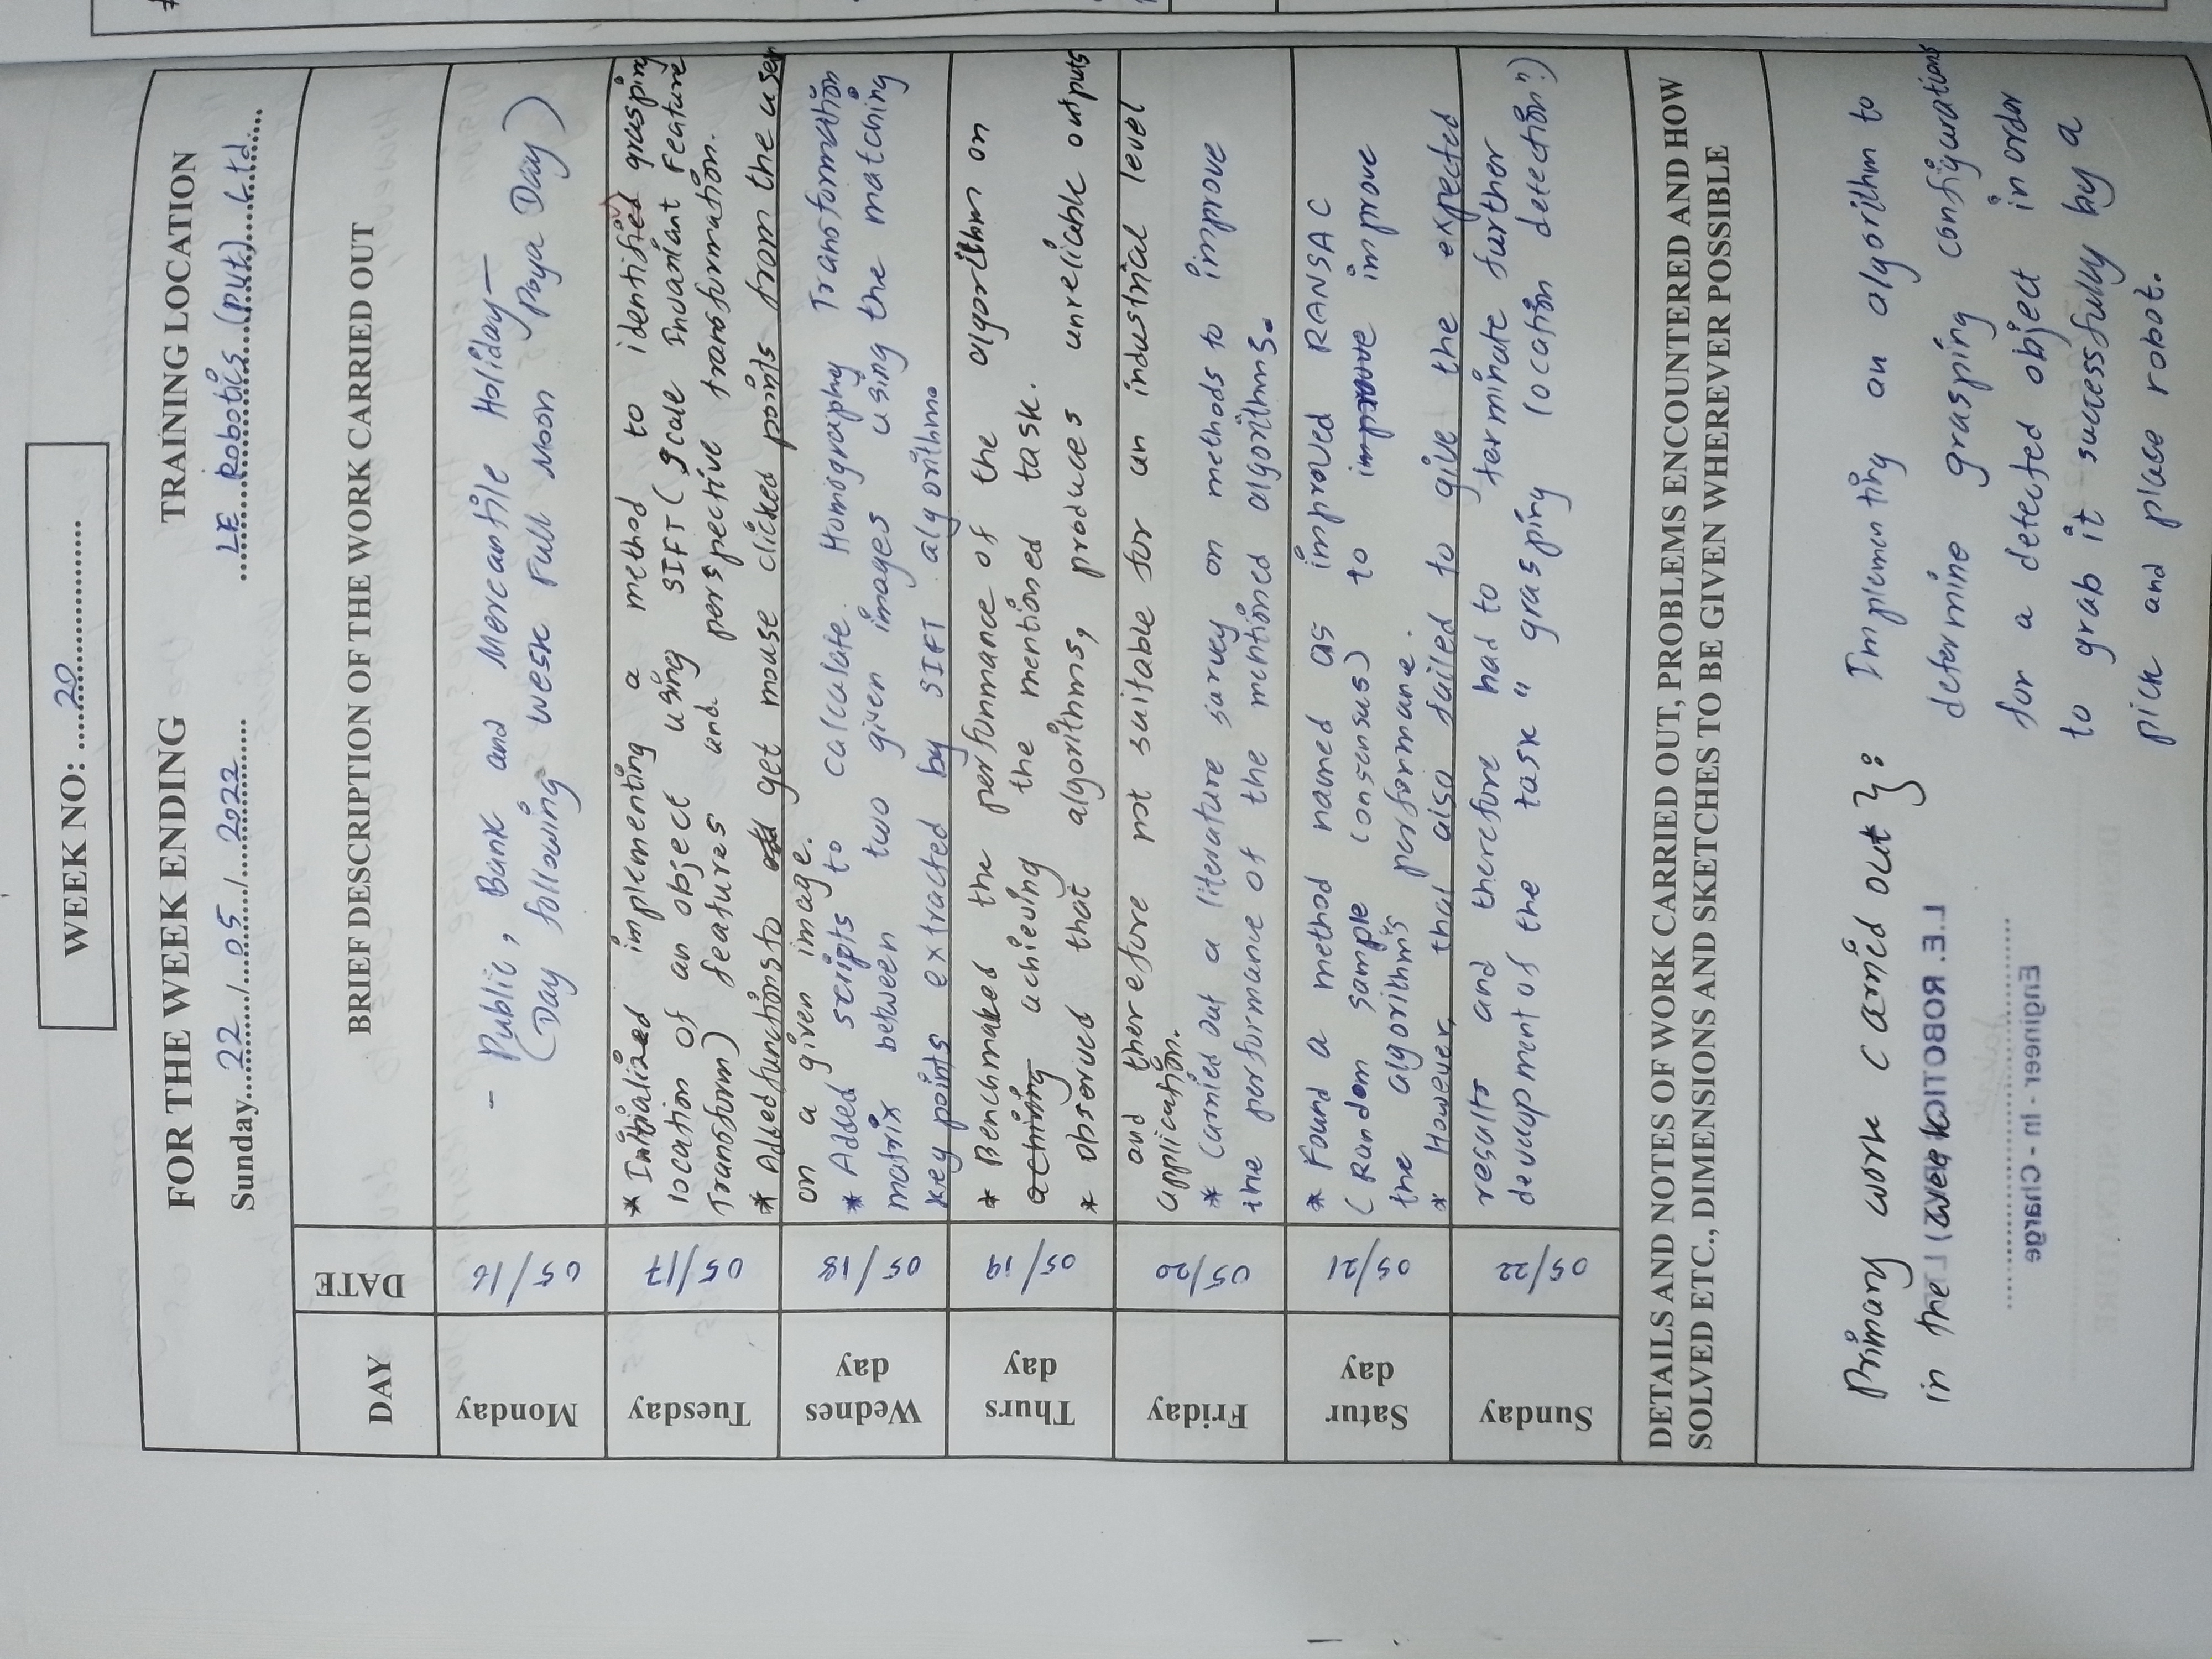 WEEK NO: ....20....
FOR THE WEEK ENDING
TRAINING LOCATION
Sunday...22.../...05.../...2022...
LE Robotics (pvt) Ltd.
DAY
DATE
BRIEF DESCRIPTION OF THE WORK CARRIED OUT
Monday
05/16
- Public, Bank and Mercantile Holiday -
(Day following Wesk Full Moon Poya Day)
Tuesday
05/17
* Initialized implementing a method to identify grasping
location of an object using SIFT (Scale Invariant Feature
Transform) features and perspective transformation.
* Added functions to get mouse clicked points from the user
on a given image.
Wednes
day
05/18
* Added scripts to calculate Homography Transformation
matrix between two given images using the matching
key points extracted by SIFT algorithm.
Thurs
day
05/19
* Benchmaked the performance of the algorithm on
aching achieving the mentioned task.
* Observed that algorithms, produces unreliable outputs
and therefore not suitable for an industrial level
application.
Friday
05/20
* Carried out a literature survey on methods to improve
the performance of the mentioned algorithms.
Satur
day
05/21
* Found a method named as improved RANSAC
(Random Sample Consensus) to improve improve
the algorithm's performane.
* However, that also failed to give the expected
results and therefore had to terminate further
development of the task "grasping location detection")
Sunday
05/22
DETAILS AND NOTES OF WORK CARRIED OUT, PROBLEMS ENCOUNTERED AND HOW
SOLVED ETC., DIMENSIONS AND SKETCHES TO BE GIVEN WHEREVER POSSIBLE
Primary work carried out } :
in the week
Implementing an algorithm to
determine grasping configurations
for a detected object in order
to grab it successfully by a
pick and place robot.
L.E. ROBOTICS (PVT) LTD
Engineer - In - Charge
DESIGNATION AND SIGNATURE